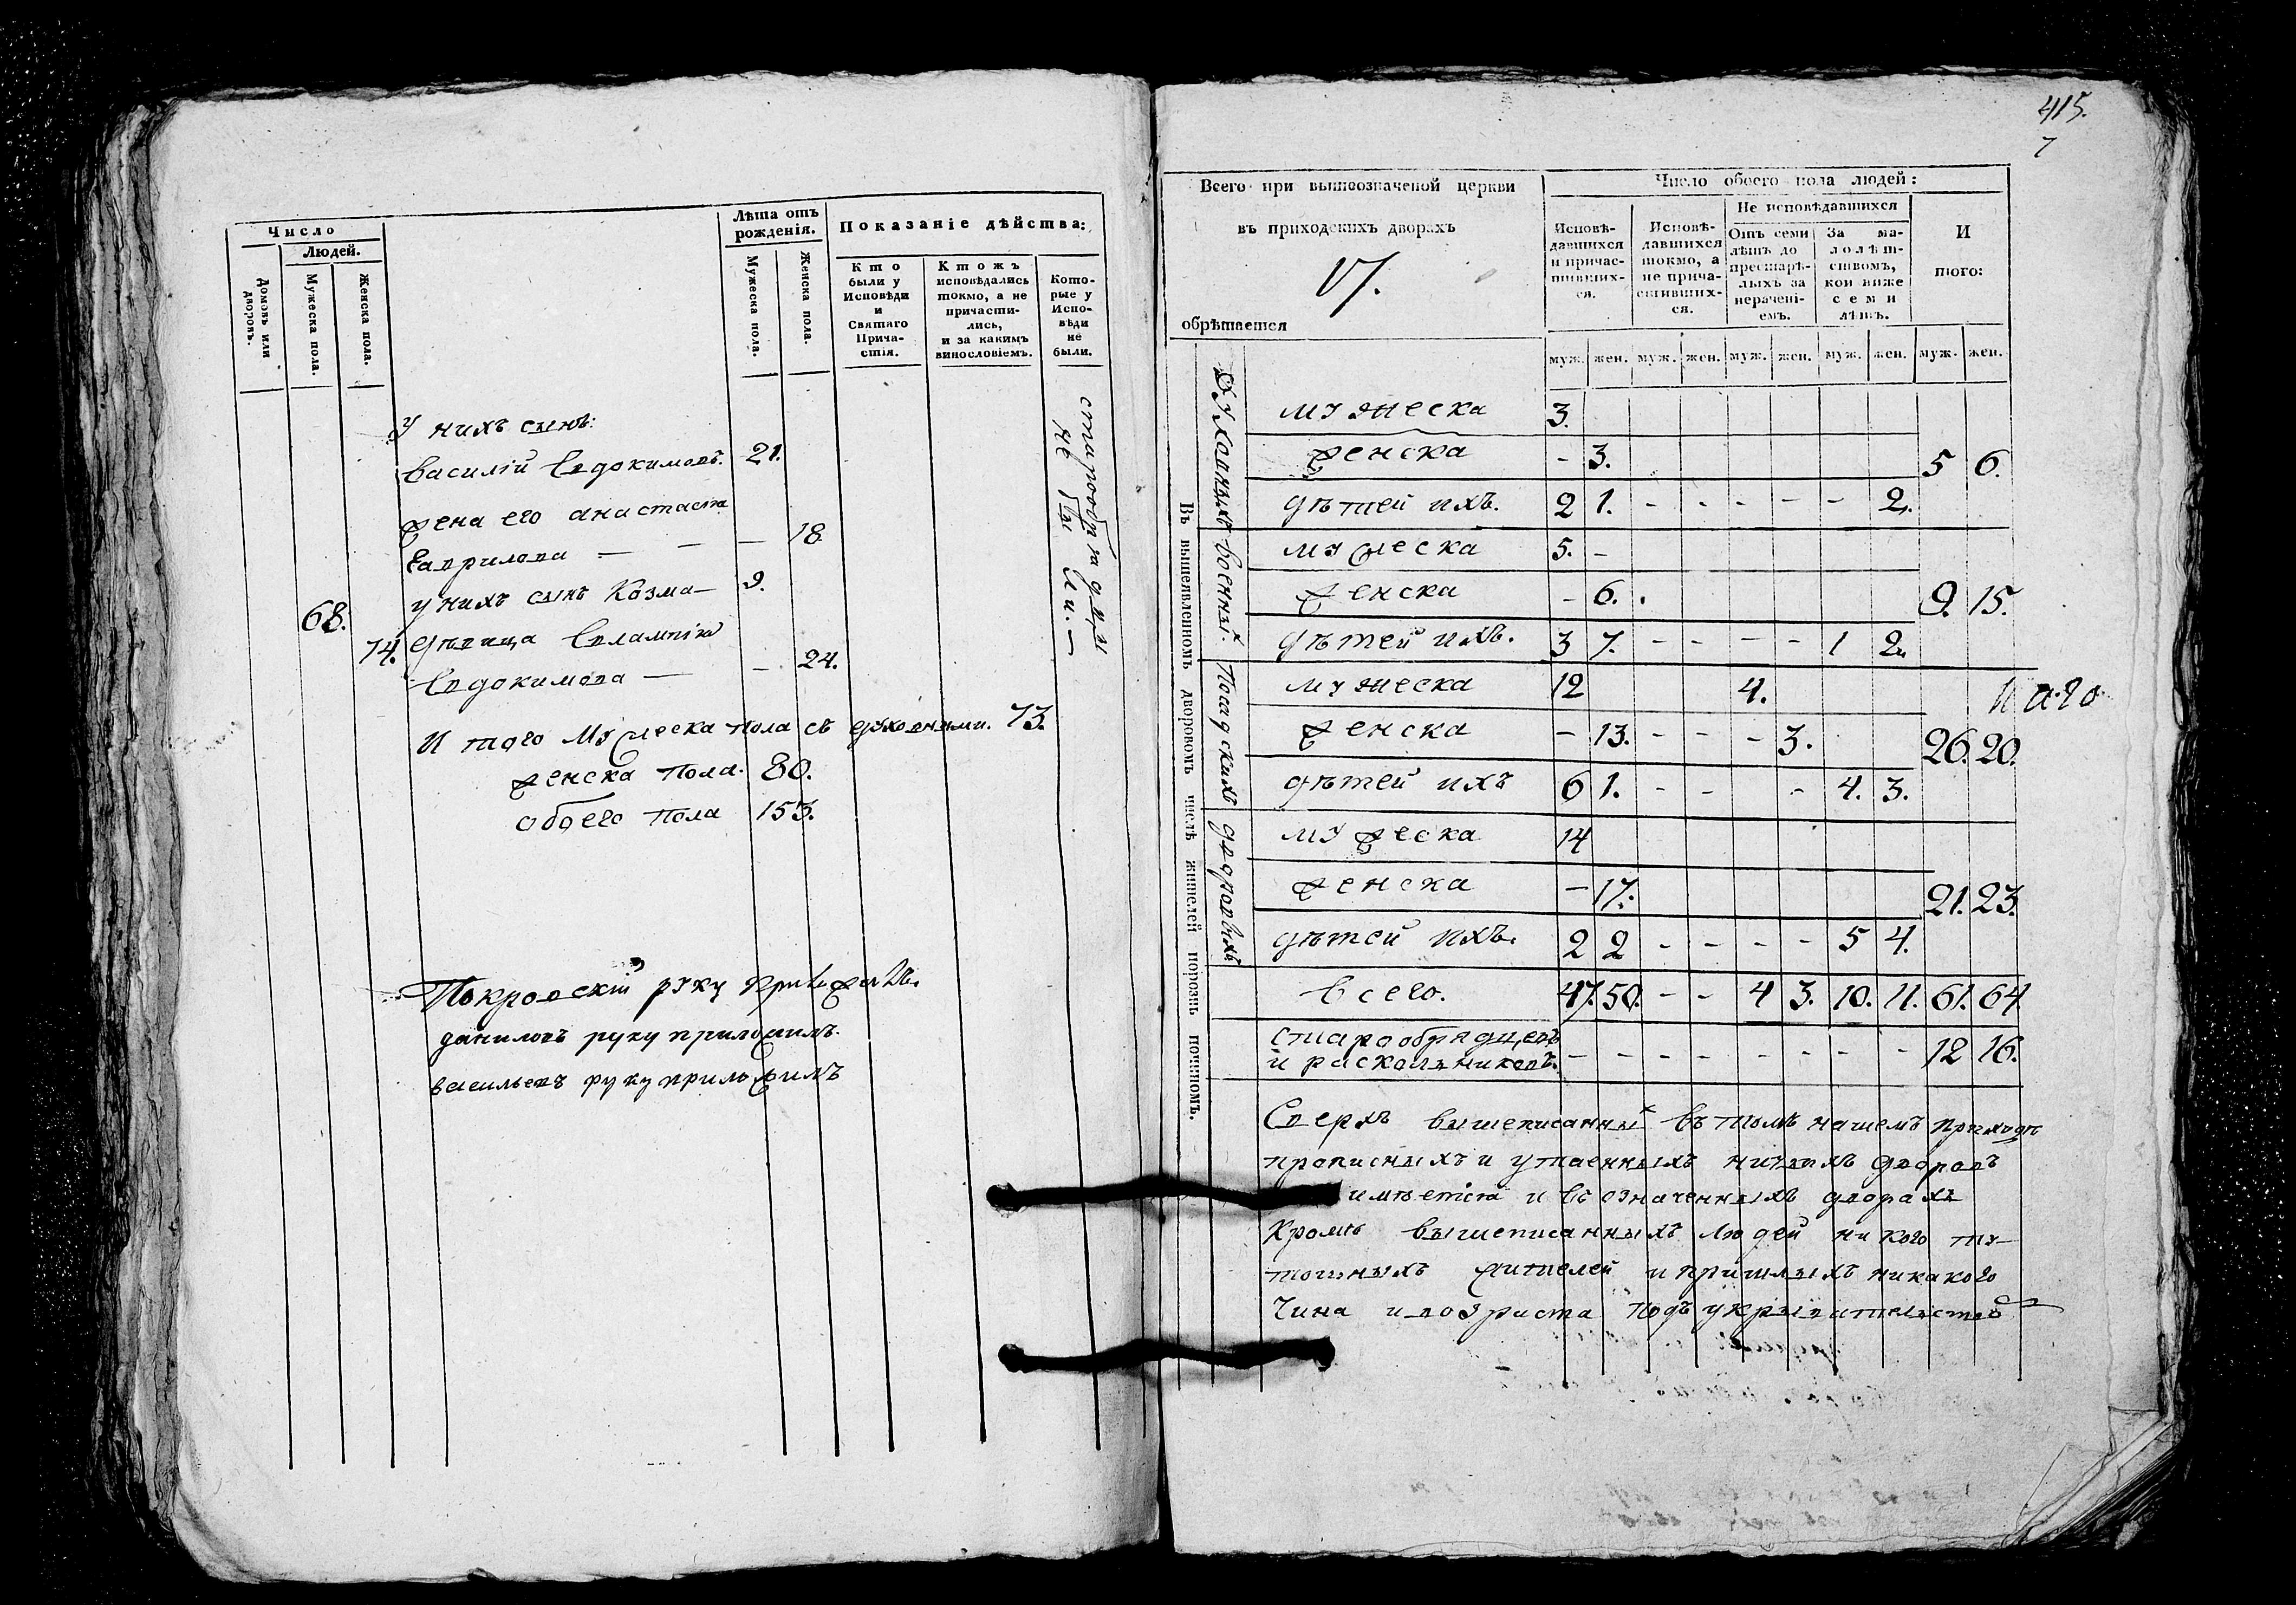 Число
Людей.
Домовъ или дворовъ.
Мужеска пола.
Женска пола.
Лѣта отъ
рожденія.
Мужеска пола.
Женска пола.
Показаніе дѣйства:
Кто
были у
Исповѣди
и
Святаго
Прича-
стія.
Ктожъ
исповѣдались
токмо, а не
причасти-
лись,
и за какимъ
винословіемъ.
Кото-
рые у
Испо-
вѣди
не
были.
У нихъ сынъ:
Василій Евдокимовъ. 21.
жена его анастасіа
Гаврилова — — — 18.
у нихъ сынъ Козма — 9.
68.
74. дѣвица Евлампіа
Евдокимова — — 24.
И того мужеска пола съ духовными. 73.
женска пола. 80.
обоего пола 153.
Покровскій руку приложилъ.
даниловъ руку приложилъ.
васильевъ руку приложилъ
415.
7
Всего при вышеозначеной церкви
въ приходскихъ дворахъ
обрѣтается
Число обоего пола людей:
Исповѣ-
давшихся
и причас-
тивших-
ся.
Исповѣ-
давшихся
токмо, а
не прича-
стивших-
ся.
Не исповѣдавшихся
Отъ семи
лѣтъ до
престарѣ-
лыхъ за
нерачені-
емъ.
За ма-
лолѣт-
ствомъ,
кои ниже
семи
лѣтъ.
И
того:
муж. жен. муж. жен. муж. жен. муж. жен. муж. жен.
Въ вышеявленномъ дворовомъ числѣ жителей порознь чиномъ.
Духовныхъ
мужеска 3.
женска - 3. 5 6.
дѣтей ихъ. 2 1. - - - - - 2.
Военныхъ
мужеска 5. -
женска - 6. 9. 15.
дѣтей ихъ. 3 7. - - - - 1 2.
Посадскихъ
мужеска 12 4.
женска - 13. - - - 3. 26. 20.
дѣтей ихъ 6 1. - - - 4. 3.
дворовыхъ
мужеска 14
женска - 17. 21. 23.
дѣтей ихъ. 2 2 - - - - 5 4.
Всего. 47. 50. - - 4 3. 10. 11. 61. 64.
Старообрядцевъ
и раскольниковъ. - - - - - - - - 12 16.
Сверхъ вышеписанныхъ въ томъ нашемъ приходѣ
прописныхъ и утаенныхъ ничьихъ дворовъ
имѣется и въ означенныхъ дворахъ
Кромѣ вышеписанныхъ людей ни кого ту-
тошныхъ жителей и пришлыхъ никакого
Чина и возраста подъ укрывательство